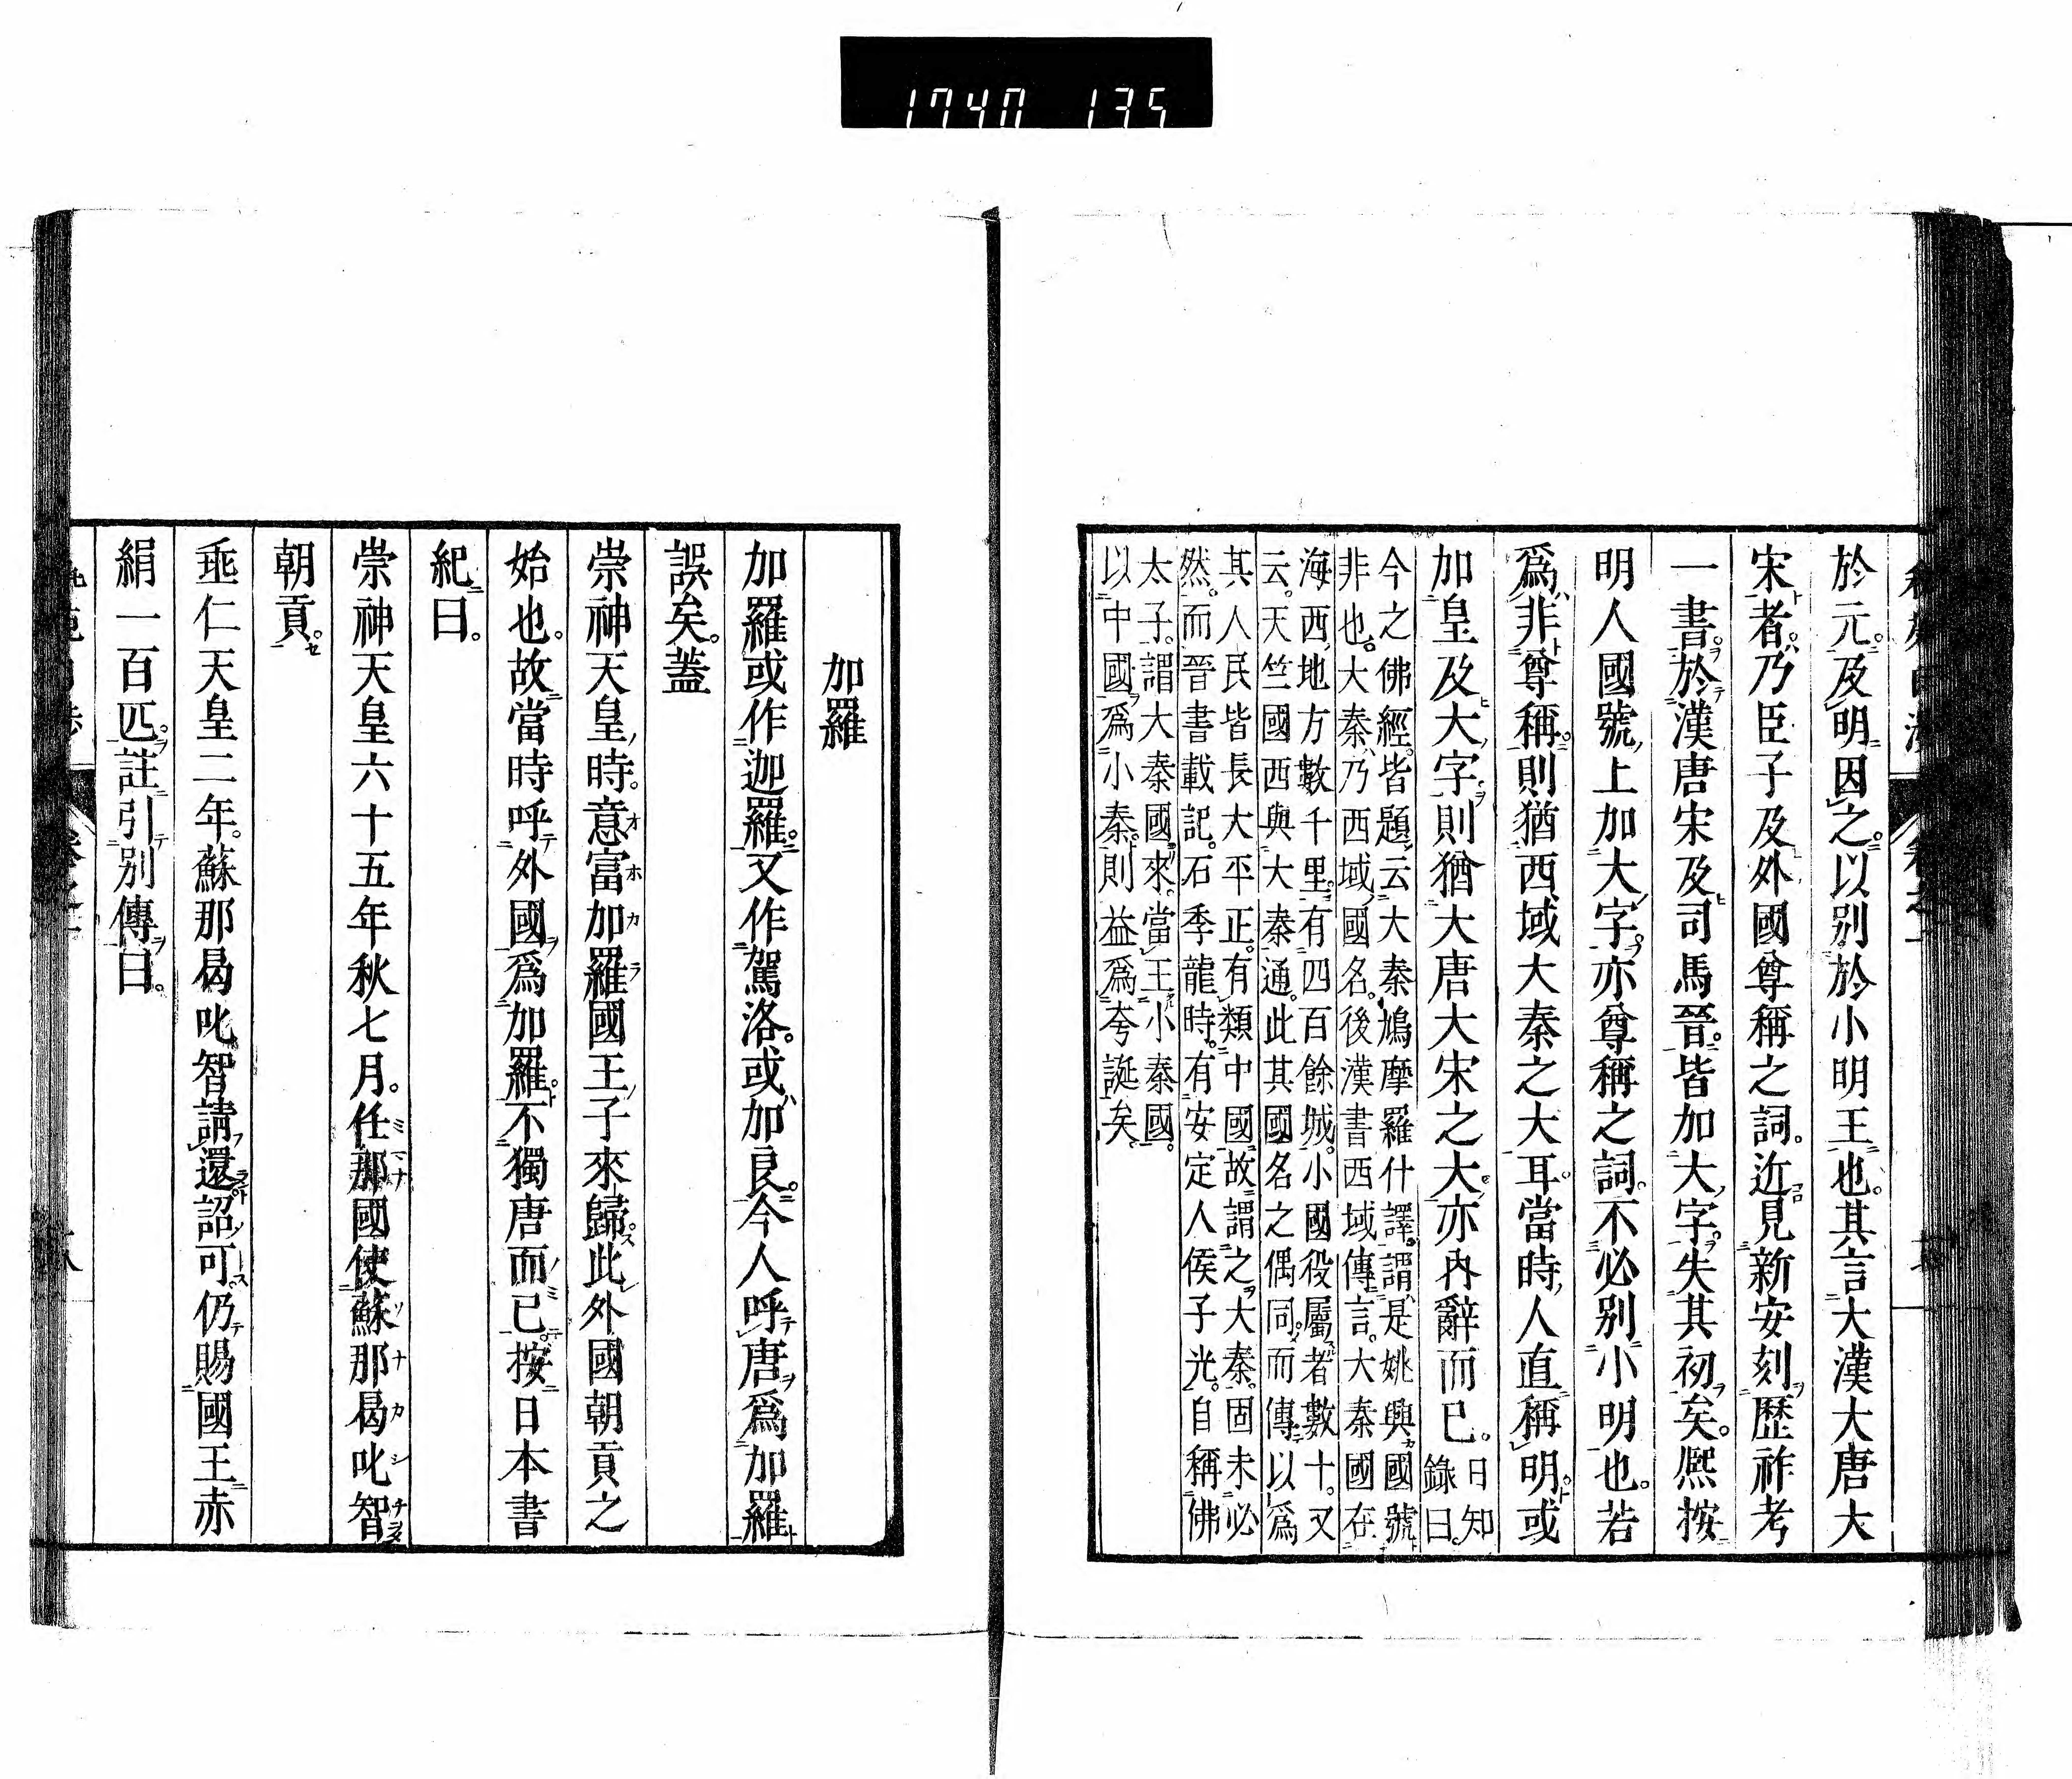 1740 135
於元。及明因之。以別於小明王也。其言大漢大唐大
宋者。乃臣子及外國尊稱之詞。近見新安刻歷祚考
一書。於漢唐宋及司馬晉。皆加大字。失其初矣。熈按
明人國號上加大字。亦尊稱之詞。不必別小明也。若
爲非尊稱。則猶西域大秦之大耳。當時人直稱明。或
加皇及大字。則猶大唐大宋之大。亦內辭而已。日知
錄曰。
今之佛經。皆題云大秦鳩摩羅什譯。謂是姚興國號
非也。大秦乃西域國名。後漢書西域傳言。大秦國在
海西。地方數千里。有四百餘城。小國役屬者數十。又
云。天竺國西與大秦通。此其國名之偶同。而傳以爲
其人民皆長大平正。有類中國。故謂之大秦。固未必
然。而晉書載記。石季龍時。有安定人侯子光。自稱佛
太子。謂大秦國來。當王小秦國。
以中國爲小秦。則益爲夸誕矣。
加羅
加羅或作迦羅。又作駕洛。或加良。今人呼唐爲加羅
誤矣。蓋
崇神天皇時。意富加羅國王子來歸。此外國朝貢之
始也。故當時呼外國爲加羅。不獨唐而已。按日本書
紀曰。
崇神天皇六十五年秋七月。任那國使蘇那曷叱智
朝貢。
垂仁天皇二年。蘇那曷叱智請還。詔可。仍賜國王赤
絹一百匹。註引別傳曰。